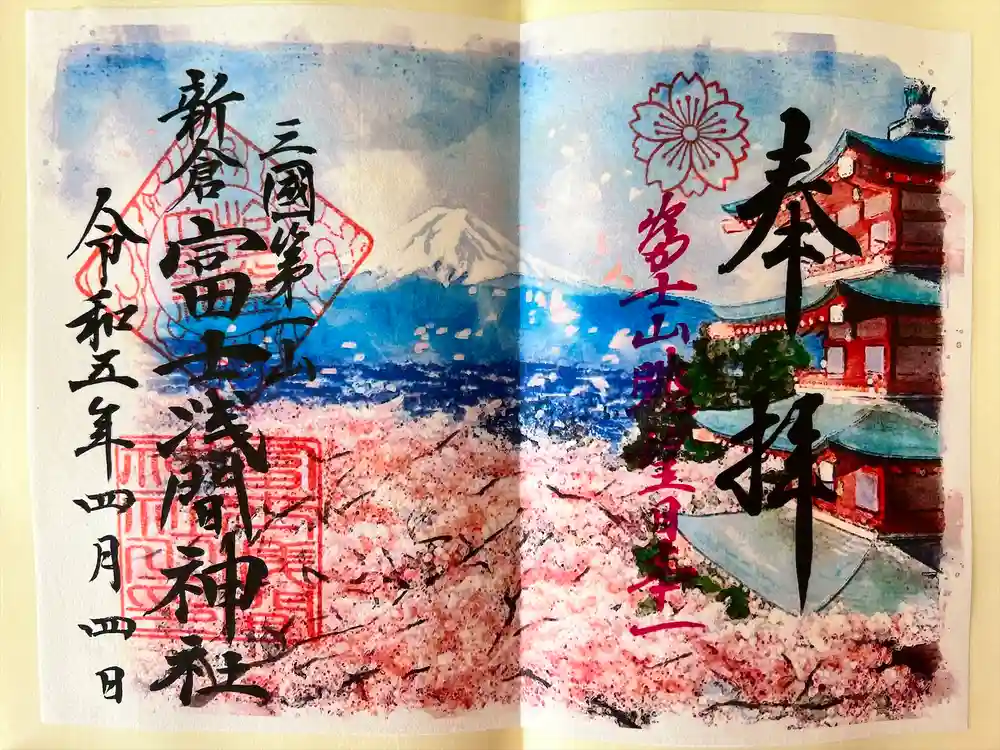 奉拝
富士山眺望日本一
三國第一山
新倉富士浅間神社
令和五年四月四日